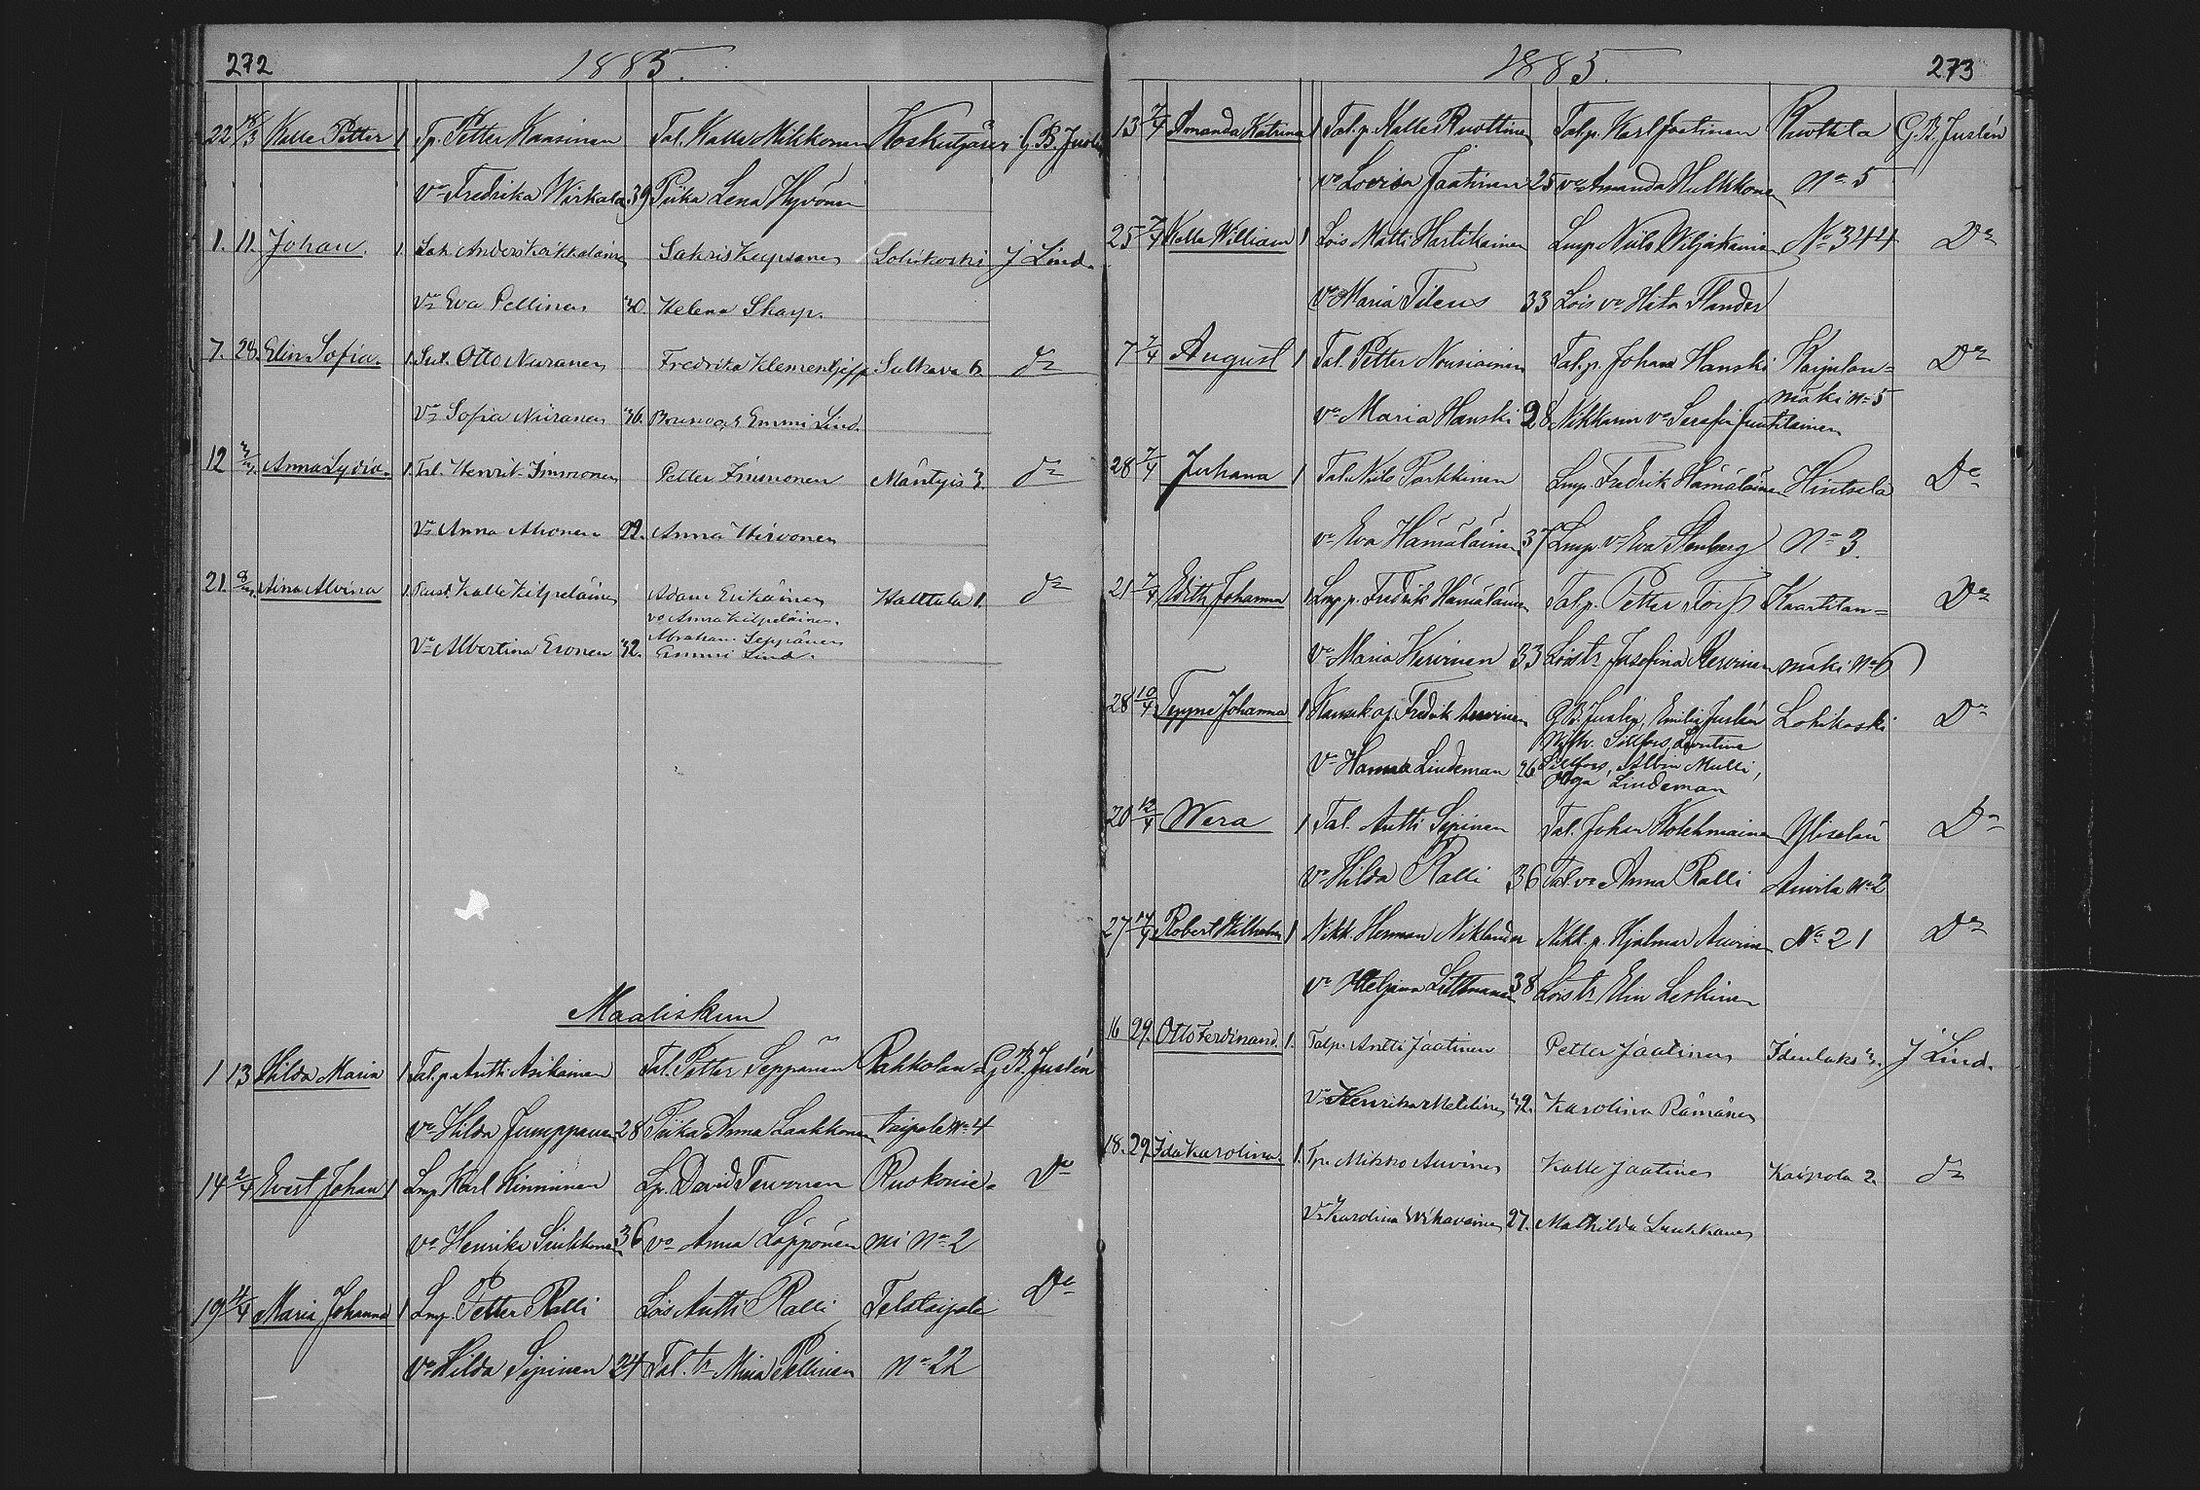 272
1885.
22 Kalle Petter 1 Tp. Petter Kaasinen Tal. Kalle Mikkonen Koskutjärvi G. B. Juslén
vo Fredrika Wirkala 39 Piika Lena Hyvönen
1. 11. Johan. 1. Anders Kaikkalainen Sakris Kupsanen Lohikoski J Lind.
vo Eva Pellinen 40. Helena Skarp.
7. 28. Elin Sofia. 1. Otto Nuranen Fredrika Klementjeff Sulkava 6. do
vo Sofia Nuranen 36. Emmi Lind.
12 Anna Lydia. 1. Tal. Henrik Immonen Petter Immonen Mäntyis 3. do
vo Anna Ahonen 22. Anna Hirvonen
21. 8/3. Aina Alvina 1. Kalle Kilpeläinen Adam Erikäinen Halttula 1. do
vo Anna Kilpeläinen.
vo Albertina Eronen 32. Abraham Seppänen
Emmi Lind.
Maaliskuu
1 13 Hilda Maria 1 Tal.p. Antti Asikainen Tal. Petter Seppänen Rahkolan= G. B. Juslén
vo Hilda Jumppanen 28 Piika Anna Laakkonen taipale No 4
14 2/4 Evert Johan 1 Lmp Karl Kinnunen Lp. David Tervonen Ruokonie= Do
vo Henrika Siukkonen 36 vo Anna Löppönen mi No 2
19 4/4 Maria Johanna 1 Lmp. Petter Ralli Lois Antti Ralli Telataipale Do
vo Hilda Sipinen 24 Tal. tr Miina Pellinen No 22
1885.
273
13 7/4 Amanda Katrina 1 Tal.p. Kalle Ruottinen Talp. Karl Jaatinen Ruottila G. B. Juslén
vo Lovisa Jaatinen 25 vo Amanda Hulkkonen No 5
25 7/4 Kalle William 1 Lois Matti Hartikainen Lmp. Niilo Wiljakainen No 344 Do
vo Maria Tileus 33 Lois vo Heta Flander
7 7/4 August 1 Tal. Petter Nousiainen Tal.p. Johan Hanski Karjulan= Do
mäki No 5
vo Maria Hanski 28 Nikkarin vo Serafia Juntilainen
28 7/4 Juhana 1 Tal. Niilo Parkkinen Lmp. Fredrik Hämäläinen Hintsala Do
vo Eva Hämäläinen 37 Lmp. vo Eva Stenberg No 3.
21 7/4 Edith Johanna 1 Lmp p. Fredrik Hämäläinen Talp. Petter Kaartilan= Do
vo Maria Kervinen 33 Lois tr Josefina Kervinen mäki No 6
28 10/4 Teppne Johanna 1 Fredrik Auvinen G. B. Juslén, Emilia Juslén Lohikoski Do
Wilh. Sillfors, Leontine
vo Hanna Lindeman 26 Sillfors, Albin Mulli,
Olga Lindeman
20 12/4 Wera 1 Tal. Antti Sipinen Tal. Johan Kolehmainen Yliselän Do
vo Hilda Ralli 36 Tal. vo Anna Ralli Auvila No 2
27 14/4 Robert Wilhelm 1 Nikk. Herman Niklander Nikk. p. Hjalmar Auvinen No 21 Do
vo Littmanen 38 Lois tr Elin Leskinen
16 29. Otto Ferdinand. 1. Talp. Antti Jaatinen Petter Jaatinen Idenlaks 3. J Lind.
vo Henrika 42. Karolina Rämänen
18. 29. Ida Karolina. 1. Tp. Mikko Auvinen Kalle Jaatinen Kaipola 2. do
vo Karolina Wihavainen 27. Mathilda Luukkanen